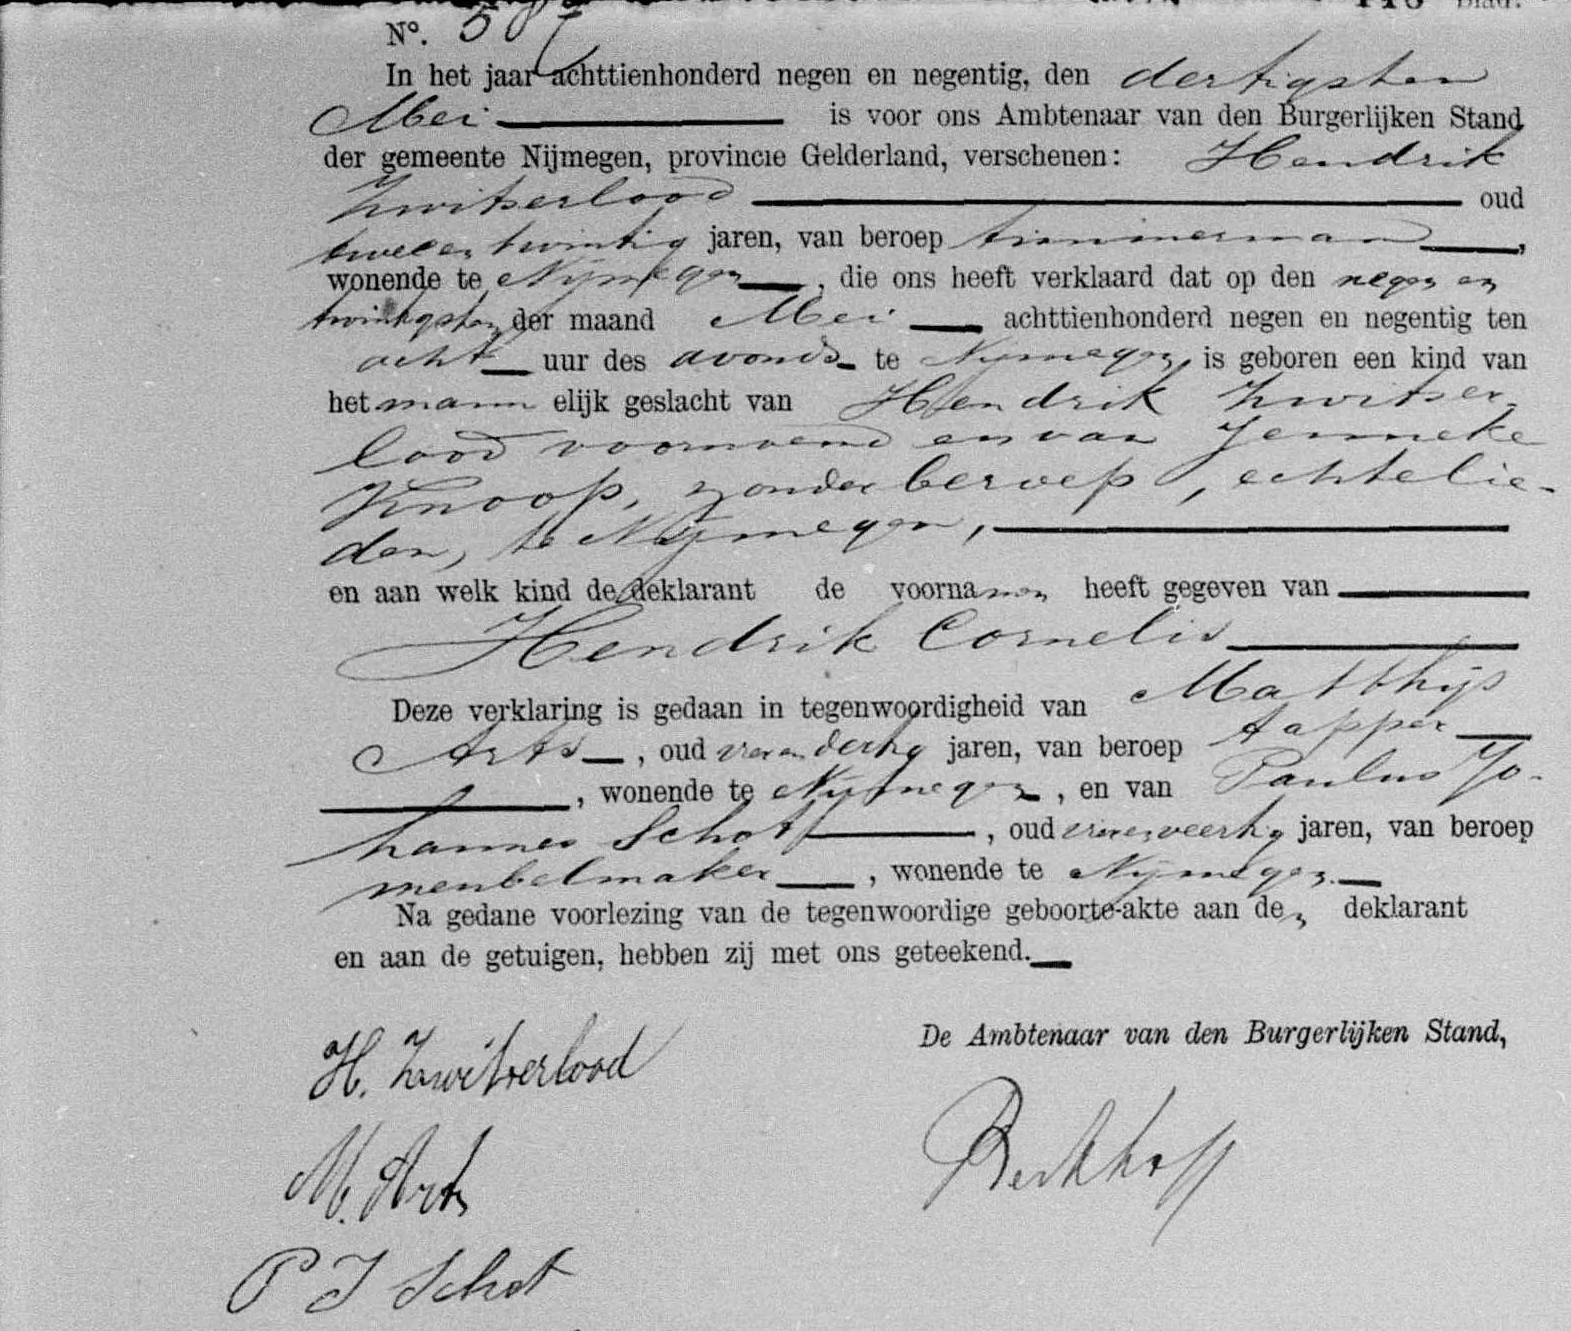 No. 587
In het jaar achttienhonderd negen en negentig, den dertigsten
Mei is voor ons Ambtenaar van den Burgerlijken Stand
der gemeente Nijmegen, provincie Gelderland, verschenen: Hendrik
Zwitserlood oud
tweeen twintig jaren, van beroep timmerman,
wonende te Nijmegen, die ons heeft verklaard dat op den negen en
twintigsten der maand Mei achttienhonderd negen en negentig ten
acht uur des avonds te Nijmegen is geboren een kind van
het mann elijk geslacht van Hendrik Zwitser-
lood voornoemd en van Jenneke
Knoop, zonder beroep, echtelie-
den, te Nijmegen,
en aan welk kind de deklarant de voornamen heeft gegeven van
Hendrik Cornelis
Deze verklaring is gedaan in tegenwoordigheid van Matthijs
Arts, oud vier en dertig jaren, van beroep tapper
, wonende te Nijmegen, en van Paulus Jo-
hannes Schot, oud veertig jaren, van beroep
meubelmaker, wonende te Nijmegen.
Na gedane voorlezing van de tegenwoordige geboorte-akte aan den deklarant
en aan de getuigen, hebben zij met ons geteekend.
De Ambtenaar van den Burgerlijken Stand,
H. Zwitserlood
M. Arts
Berkhoff
P J Schot